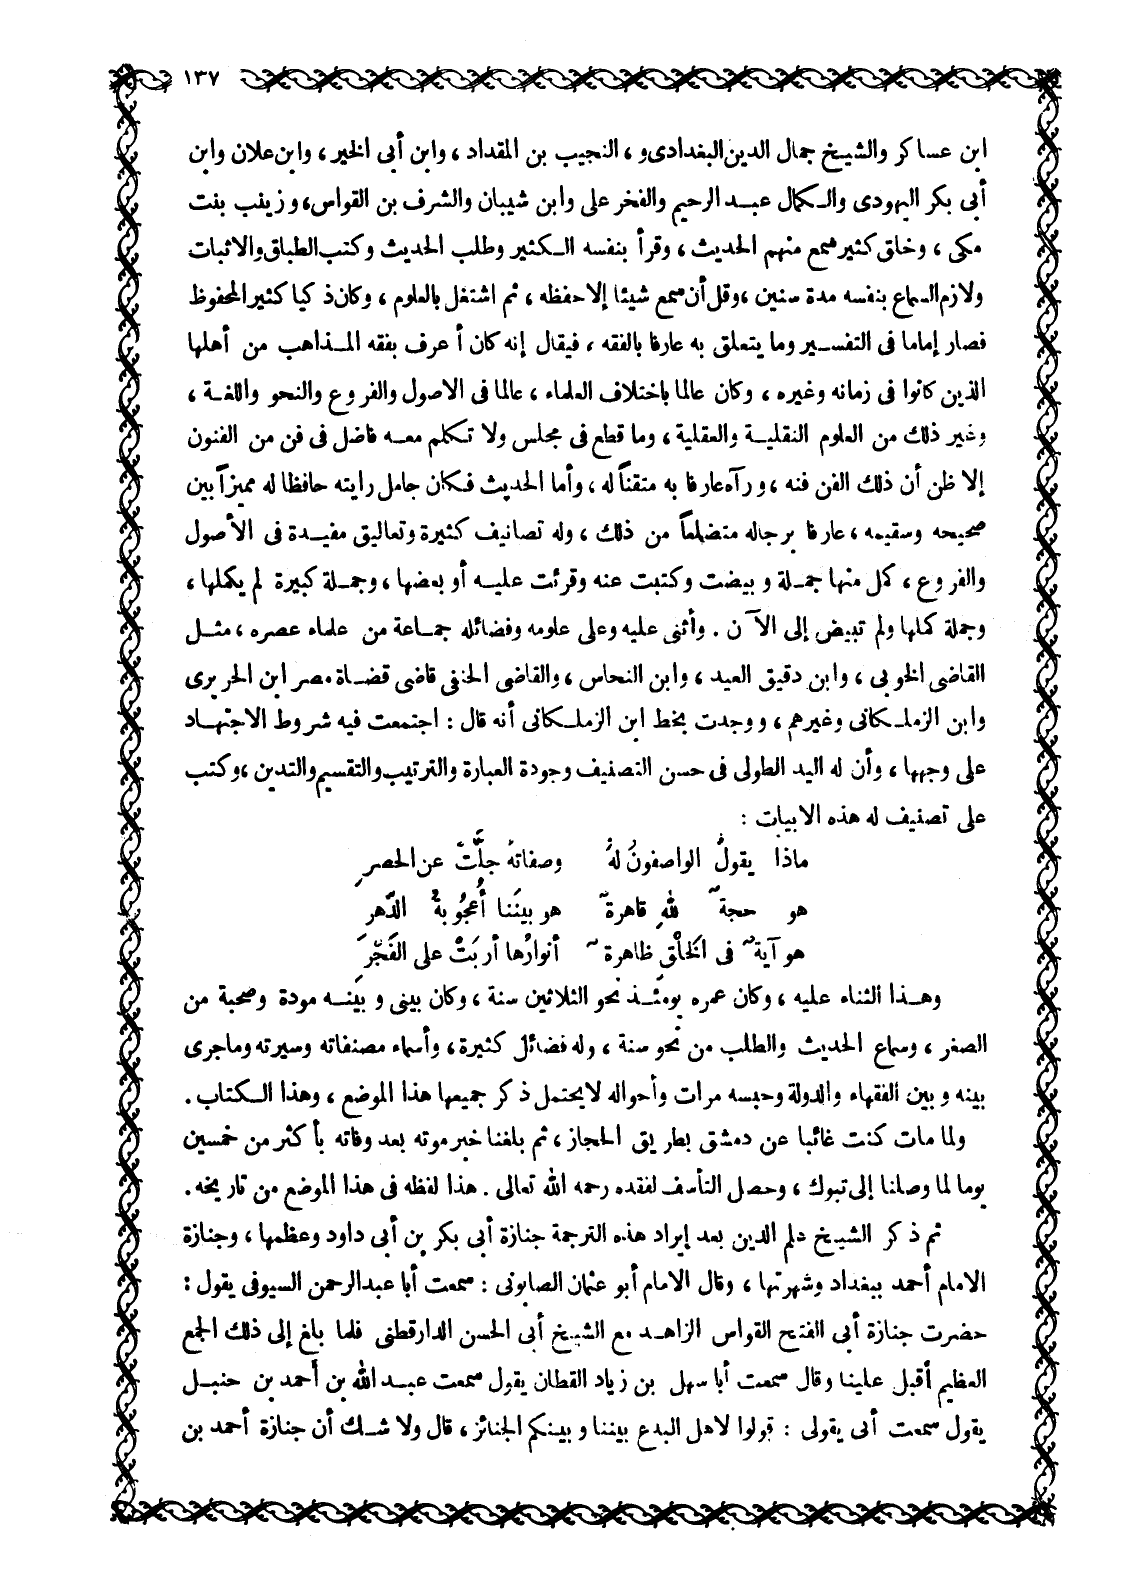 ١٣٧
ابن عساكر والشيخ جمال الدين البغدادى و ، النجيب بن المقداد ، وابن أبى الخير ، وابن علان وابن
أبى بكر اليهودى والكمال عبد الرحيم والفخر على وابن شيبان والشرف بن القواس، وزينب بنت
مكى ، وخلق كثير سمع منهم الحديث ، وقرأ بنفسه الكثير وطلب الحديث وكتب الطباق والاثبات
ولازم السماع بنفسه مدة سنين ، وقل أن سمع شيئا إلا حفظه ، ثم اشتغل بالعلوم ، وكان ذكيا كثير المحفوظ
فصار إماما فى التفسير وما يتعلق به عارفا بالفقه ، فيقال إنه كان أعرف بفقه المذاهب من أهلها
الذين كانوا فى زمانه وغيره ، وكان عالما باختلاف العلماء ، عالما فى الاصول والفروع والنحو واللغة ،
وغير ذلك من العلوم النقلية والعقلية ، وما قطع فى مجلس ولا تكلم معه فاضل فى فن من الفنون
إلا ظن أن ذلك الفن فنه ، ورآه عارفا به متقناً له ، وأما الحديث فكان حامل رايته حافظا له مميزاً بين
صحيحه وسقيمه ، عارفا برجاله متضلعاً من ذلك ، وله تصانيف كثيرة وتعاليق مفيدة فى الأصول
والفروع ، كمل منها جملة وبيضت وكتبت عنه وقرئت عليه أو بعضها ، وجملة كبيرة لم يكملها ،
وجملة كملها ولم تبيض إلى الآن . وأثنى عليه وعلى علومه وفضائله جماعة من علماء عصره ، مثل
القاضى الخوبى ، وابن دقيق العيد ، وابن النحاس ، والقاضى الحنفى قاضى قضاة مصر ابن الحريرى
وابن الزملكانى وغيرهم ، ووجدت بخط ابن الزملكانى أنه قال : اجتمعت فيه شروط الاجتهاد
على وجهها ، وأن له اليد الطولى فى حسن التصنيف وجودة العبارة والترتيب والتقسيم والتدين ، وكتب
على تصنيف له هذه الابيات :
ماذا يقولُ الواصفونُ لهُ وصفاتهُ جلَّتْ عن الحصرِ
هو حجةٌ للهِ قاهرةٌ هو بينَنا أُعجُوبةُ الدَّهرِ
هو آيةٌ فى الخَلْقِ ظاهرةٌ أنوارُها أربَتْ على الفَجْرِ
وهذا الثناء عليه ، وكان عمره يومئذ نحو الثلاثين سنة ، وكان بينى وبينه مودة وصحبة من
الصغر ، وسماع الحديث والطلب من نحو سنة ، وله فضائل كثيرة ، وأسماء مصنفاته وسيرته وماجرى
بينه وبين الفقهاء والدولة وحبسه مرات وأحواله لا يحتمل ذكر جميعها هذا الموضع ، وهذا الكتاب .
ولما مات كنت غائبا عن دمشق بطريق الحجاز ، ثم بلغنا خبر موته بعد وفاته بأكثر من خمسين
يوما لما وصلنا إلى تبوك ، وحصل التأسف لفقده رحمه الله تعالى . هذا لفظه فى هذا الموضع من تاريخه .
ثم ذكر الشيخ علم الدين بعد إيراد هذه الترجمة جنازة أبى بكر بن أبى داود وعظمها ، وجنازة
الامام أحمد ببغداد وشهرتها ، وقال الامام أبو عثمان الصابونى : سمعت أبا عبدالرحمن السيوفى يقول :
حضرت جنازة أبى الفتح القواس الزاهد مع الشيخ أبى الحسن الدارقطنى فلما بلغ إلى ذلك الجمع
العظيم أقبل علينا وقال سمعت أبا سهل بن زياد القطان يقول سمعت عبد الله بن أحمد بن حنبل
يقول سمعت أبى يقولى : قولوا لاهل البدع بيننا وبينكم الجنائز ، قال ولا شك أن جنازة أحمد بن